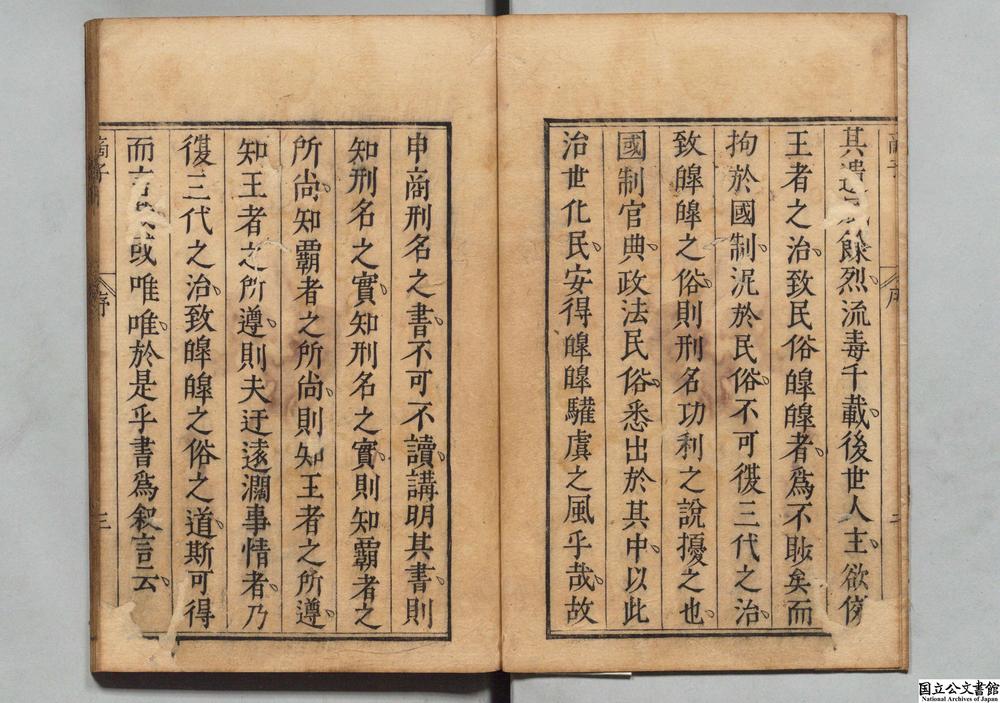 其遺烈餘烈流毒千載後世人主欲倣
王者之治致民俗皥皥者爲不尠矣而
拘於國制泥於民俗不可復三代之治
致皥皥之俗則刑名功利之說擾之也
國制官典政法民俗悉出於其中以此
治世化民安得皥皥驩虞之風乎哉故
序
申商刑名之書不可不讀講明其書則
知刑名之實知刑名之實則知霸者之
所尚知霸者之所尚則知王者之所遵
知王者之所遵則夫迂遠濶事情者乃
復三代之治致皥皥之俗之道斯可得
而言或唯唯於是乎書爲叙言云
商子
序
三
国立公文書館
National Archives of Japan